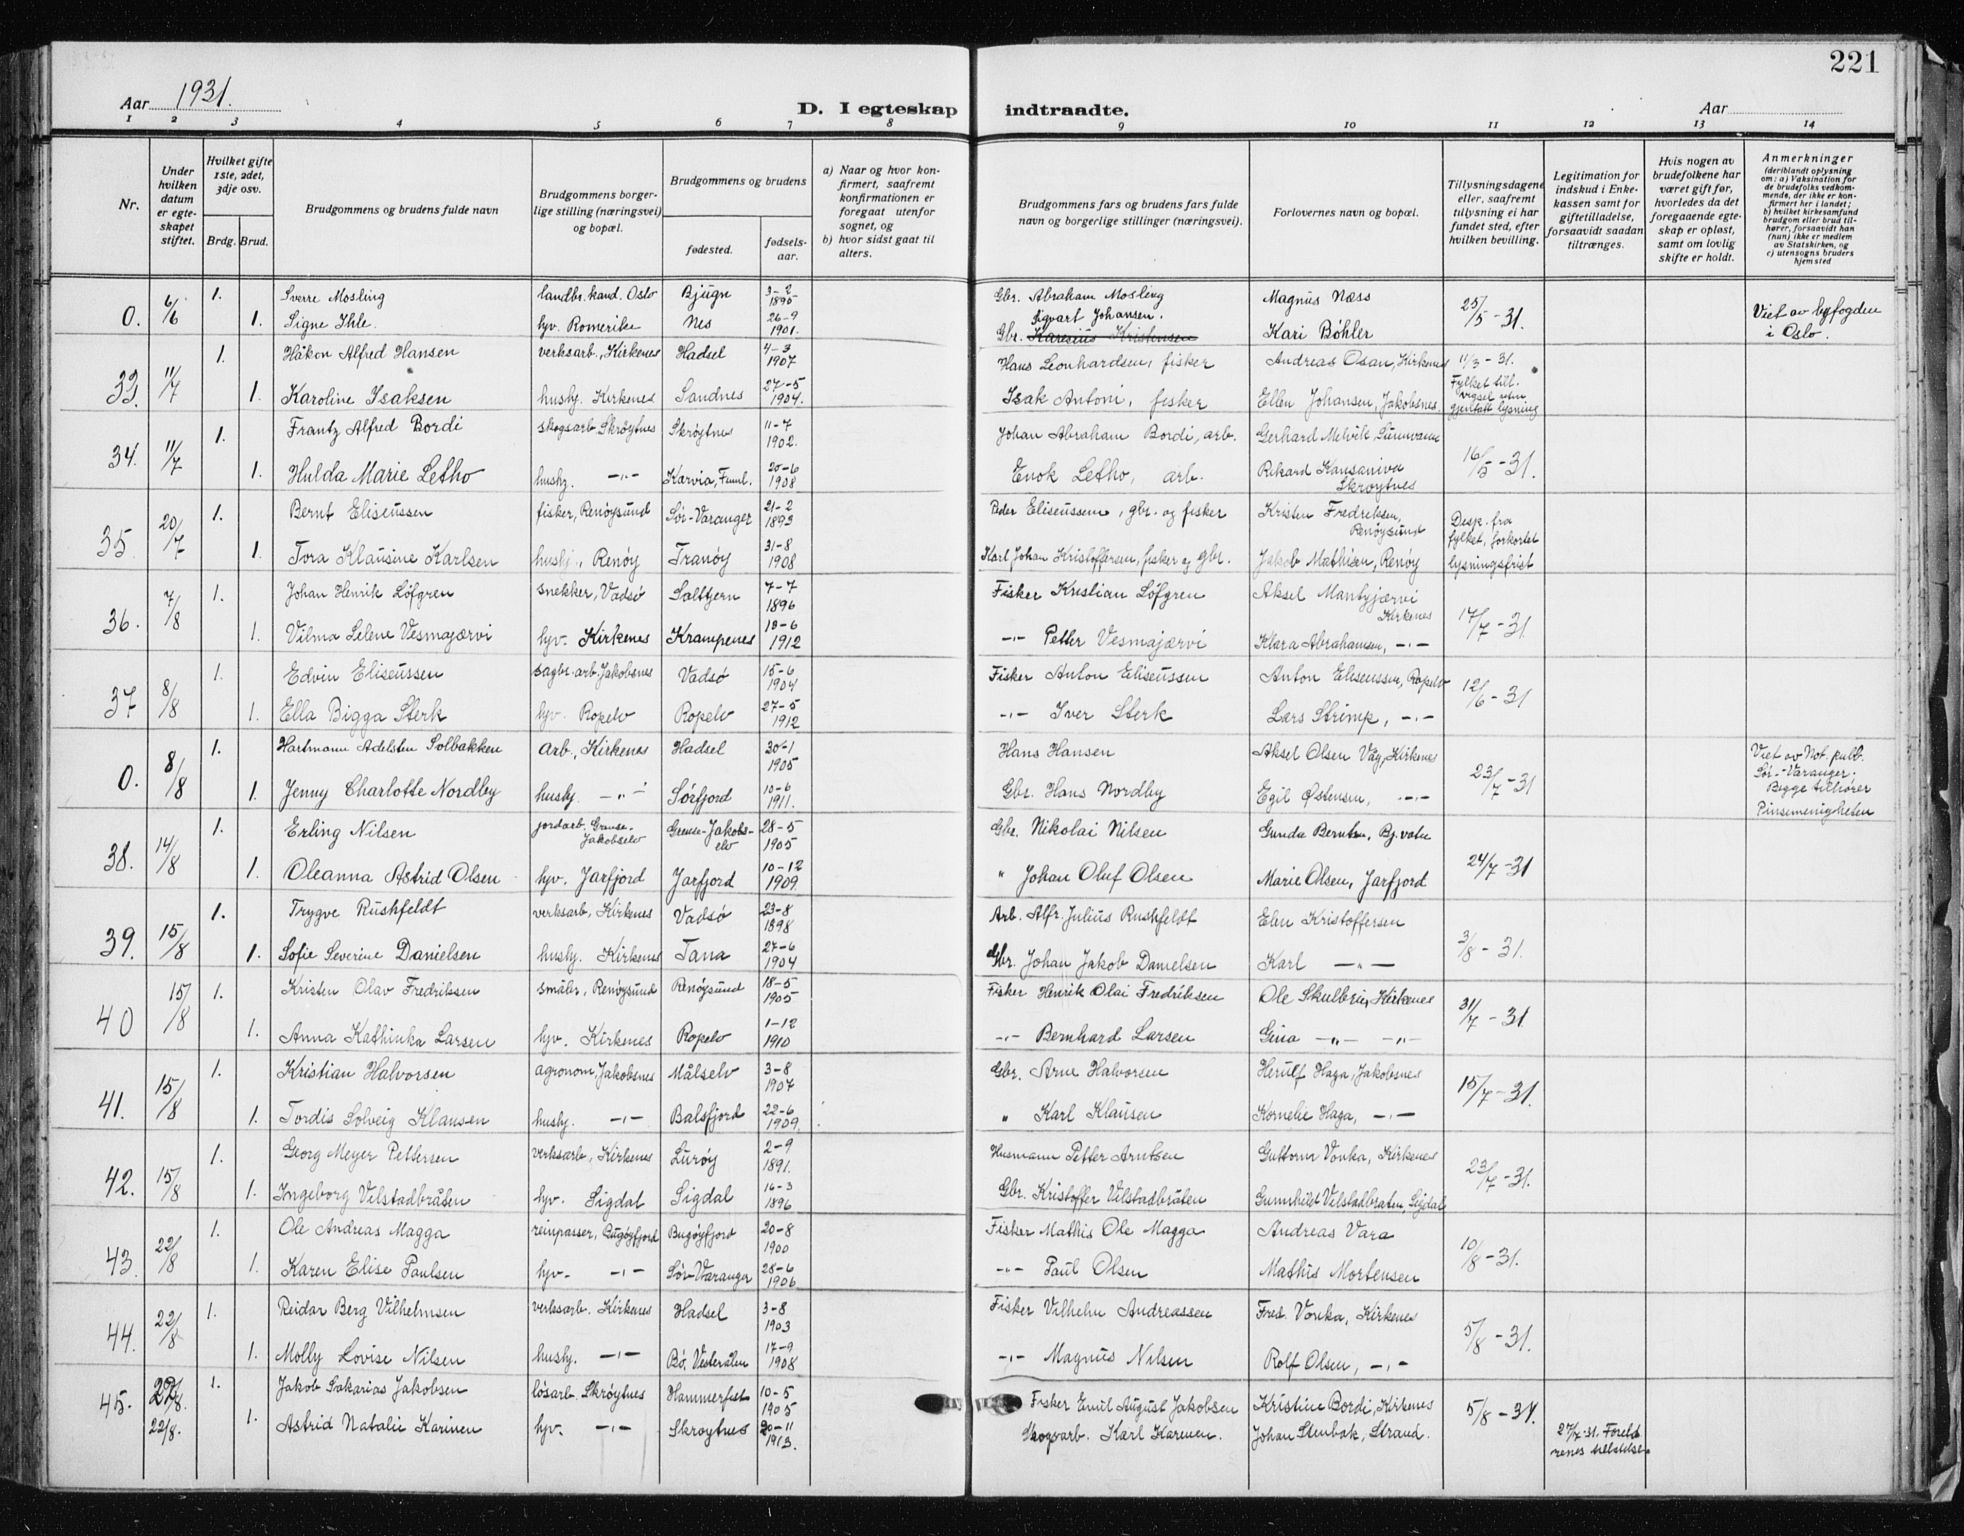 221
Aar 1931.
D. I egteskap indtraadte.
Aar
1 2 3 4 5 6 7 8 9 10 11 12 13 14
Nr.
Under hvilken datum er egteskapet stiftet.
Hvilket gifte 1ste, 2det, 3dje osv.
Brdg. Brud.
Brudgommens og brudens fulde navn
Brudgommens borgerlige stilling (næringsvei) og bopæl.
Brudgommens og brudens
fødested.
fødselsaar.
a) Naar og hvor konfirmert, saafremt konfirmationen er foregaat utenfor sognet, og
b) hvor sidst gaat til alters.
Brudgommens fars og brudens fars fulde navn og borgerlige stillinger (næringsvei).
Forlovernes navn og bopæl.
Tillysningsdagene eller, saafremt tillysning ei har fundet sted, efter hvilken bevilling.
Legitimation for indskud i Enkekassen samt for giftetilladelse, forsaavidt saadan tiltrænges.
Hvis nogen av brudefolkene har været gift før, hvorledes da det foregaaende egteskap er opløst, samt om lovlig skifte er holdt.
Anmerkninger (deriblandt oplysning om: a) Vaksination for de brudefolks vedkommende, der ikke er konfirmert her i landet; b) hvilket kirkesamfund brudgom eller brud tilhører, forsaavidt han (hun) ikke er medlem av Statskirken, og c) utensogns bruders hjemsted
0. 6/6 1. Sverre Mosling landbr. kand. Oslo Bjugn 3-2 1895 Gbr. Abraham Mosling Magnus Næss 25/5-31. Viet av byfogden i Oslo.
1. Signe Ihle. hjv. Romerike Nes 26-9 1901. Gbr. Karesius Kristensen Sigvart Johansen. Kari Bøhler
33. 11/7 1. Håkon Alfred Hansen verksarb., Kirkenes Hadsel 4-3 1907 Hans Leonhardsen, fisker Andreas Osan, Kirkenes 11/3-31. Fylket till. vigsel uten gjentatt lysning
1. Karoline Isaksen husbj. Kirkenes Sandnes 27-5 1904. Isak Antoni, fisker Ellen Johansen, Jakobsnes.
34. 11/7 1. Frantz Alfred Bordi skogsarb. Skrøytnes Skrøytnes 11-7 1902. Johan Abraham Bordi, arb. Gerhard Melvik, 16/5-31.
1. Hulda Marie Letho husbj. -"- Karvia, Finnl. 20-6 1908 Enok Letho, arb. Rikard Skrøytnes
35. 20/7 1. Bernt Eliseussen fisker, Renøysund Sør-Varanger 21-2 1893 Peder Eliseussen, gbr. og fisker Kristen Fredriksen, Renøysund Desp. fra fylket, forkortet lysningsfrist
1. Tora Klausine Karlsen husbj., Renøy Tranøy 31-8 1908 Karl Johan Kristoffersen, fisker og gbr. Jakob Mathisen, Renøy
36. 7/8 1. Johan Henrik Løfgren snekker, Vadsø Saltjern 7-7 1896 Fisker Kristian Løfgren Aksel Mantyjærvi Kirkenes 17/7-31
1. Vilma Selene Vesmajærvi hjv. Kirkenes Krampenes 18-6 1912 -"- Petter Vesmajærvi Klara Abrahamsen, -"-
37 8/8 1. Edvin Eliseussen sagbr. arb. Jakobsnes Vadsø 15-6 1904 Fisker Anton Eliseussen Anton Eliseussen, Ropelv 12/6-31
1. Ella Bigga Sterk hjv. Ropelv Ropelv 27-5 1912 -"- Iver Sterk Lars Strimp, -"-
0. 8/8 1. Hartmann Adelsten Solbakken arb., Kirkenes Hadsel 30-1 1905 Hans Hansen Aksel Olsen Våg, Kirkenes 23/7-31 Viet av Not. publ. Sør-Varanger. Begge tilhører Pinsemenigheten
1. Jenny Charlotte Nordby husbj. -"- Sørfjord 10-6 1911. Gbr. Hans Nordby Egil Østensen, -"-
38. 14/8 1. Erling Nilsen jordarb. Grense-Jakobselv Grense-Jakobselv 28-5 1905 Gbr. Nikolai Nilsen Gunda Berntsen, Bj.vatn 24/7-31
1. Oleanna Astrid Olsen hjv. Jarfjord Jarfjord 10-12 1909. " Johan Oluf Olsen Marie Olsen, Jarfjord
39. 15/8 1. Trygve Rushfeldt verksarb., Kirkenes Vadsø 23-8 1898 Arb. Alfr. Julius Rushfeldt Elen Kristoffersen 3/8-31.
1. Sofie Severine Danielsen husbj. Kirkenes Tana 27-6 1904 Gbr. Johan Jakob Danielsen Karl -"-
40 15/8 1. Kristen Olav Fredriksen småbr., Renøysund Renøysund 18-5 1905 Fisker Henrik Olai Fredriksen Ole Skulbru, Kirkenes 31/7-31
1. Anna Kathinka Larsen hjv. Kirkenes Ropelv 1-12 1910 -"- Bernhard Larsen Gina -"- -"-
41. 15/8 1. Kristian Halvorsen agronom, Jakobsnes Målselv 3-8 1907 Gbr. Arne Halvorsen Herulf Haga, Jakobsnes 15/7-31.
1. Tordis Solveig Klausen husbj. -"- Balsfjord 22-6 1909. " Karl Klausen Kornelie Haga, -"-
42. 15/8 1. Georg Meyer Pettersen verksarb., Kirkenes Lurøy 2-9 1891. Husmann Petter Arntsen Guttorm Vonka, Kirkenes 23/7-31.
1. Ingeborg Vilstadbråten hjv. Sigdal Sigdal 16-3 1896 Gbr. Kristoffer Vilstadbråten Gunnhild Vilstadbraten, Sigdal
43. 22/8 1. Ole Andreas Magga reinpasser, Bugøyfjord Bugøyfjord 20-8 1900 Fisker Mathis Ole Magga Andreas Vara 10/8-31.
1. Karen Elise Paulsen hjv. -"- Sør-Varanger 28-6 1906 -"- Paul Olsen Mathis Mortensen
44. 22/8 1. Reidar Berg Vilhelmsen verksarb. Kirkenes Hadsel 3-8 1903 Fisker Vilhelm Andreassen Fred. Vonka, Kirkenes 5/8-31.
1. Molly Lovise Nilsen husbj. -"- Bø, Vesterålen 17-9 1908 -"- Magnus Nilsen Rolf Olsen, -"-
45. 22/8. 1. Jakob Sakarias Jakobsen løsarb. Skrøytnes Hammerfest 10-5 1905 Fisker Emil August Jakobsen Kristine Bordi, Kirkenes 5/8-31.
22/8. 1. Astrid Natalie Karinen hjv. -"- Skrøytnes 20-11 1913. Skogsarb. Karl Karinen. Johan Stenbak, Strand. 27/7-31. Foreldrenes tillatelse